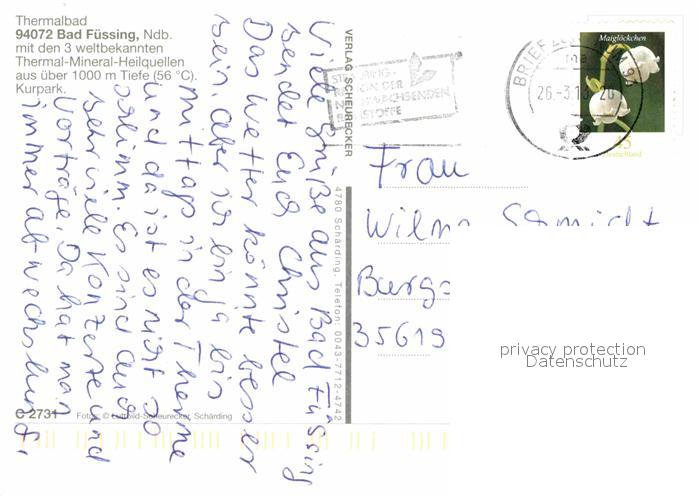 Thermalbad
94072 Bad Füssing, Ndb.
mit den 3 weltbekannten
Thermal-Mineral-Heilquellen
aus über 1000 m Tiefe (56 °C).
Kurpark.
Viele Grüße aus Bad Füssing
sendet Euch Christel
Das Wetter könnte besser
sein, aber ich bin ja bis
mittag in der Therme
und da ist es nicht so
schlimm. Es sind auch
sehr viele Konzerte und
Vorträge. Da hat man
immer abwechslung.
C 2731
Fotos: © Luftbild-Scheurecker, Schärding
VERLAG SCHEURECKER
4780 Schärding, Telefon: 0043-7712-4742
ON DER
WACHSENDEN
STOFFE
BRIEF
26.-3.13
Maiglöckchen
45
Deutschland
Frau
Wilma Schmidt
Burgs
35619
privacy protection
Datenschutz